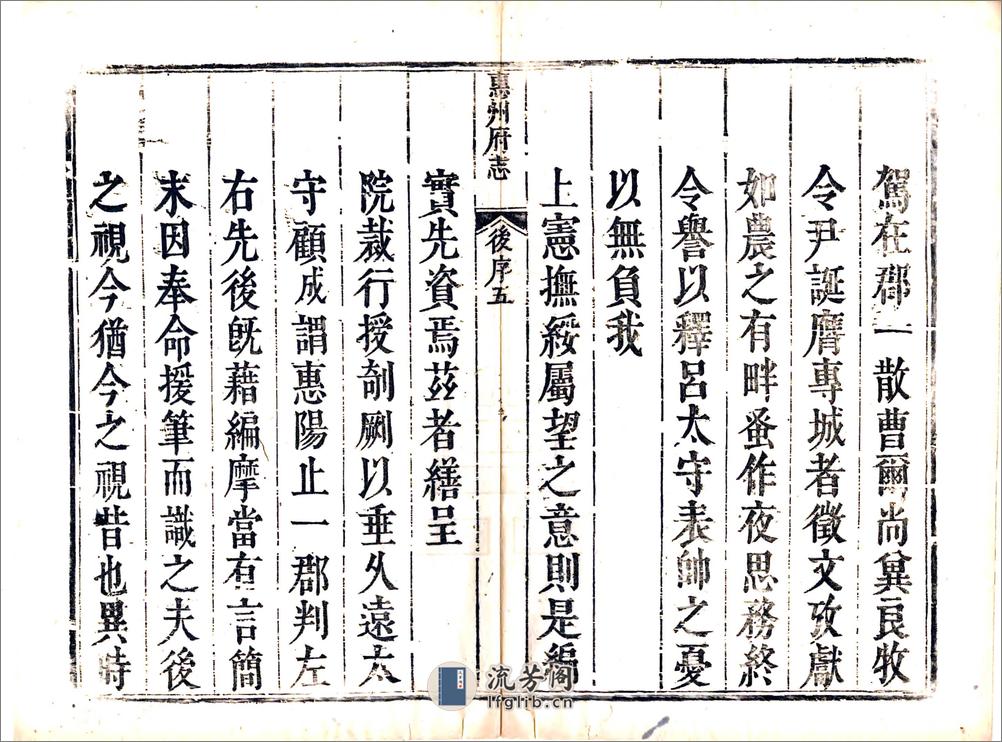 駕在郡一散曹爾尚兾良牧
令尹誕膺專城者徵文攷獻
如農之有畔蚤作夜思務終
令譽以釋呂太守表帥之憂
以無負我
上憲撫綏屬望之意則是編
惠州府志
後序五
實先資焉茲者繕呈
院裁行授剞劂以垂久遠太
守顧成謂惠陽止一郡判左
右先後旣藉編摩當有言簡
末因奉命援筆而識之夫後
之視今猶今之視昔也異時
流芳閣
lfglib.cn